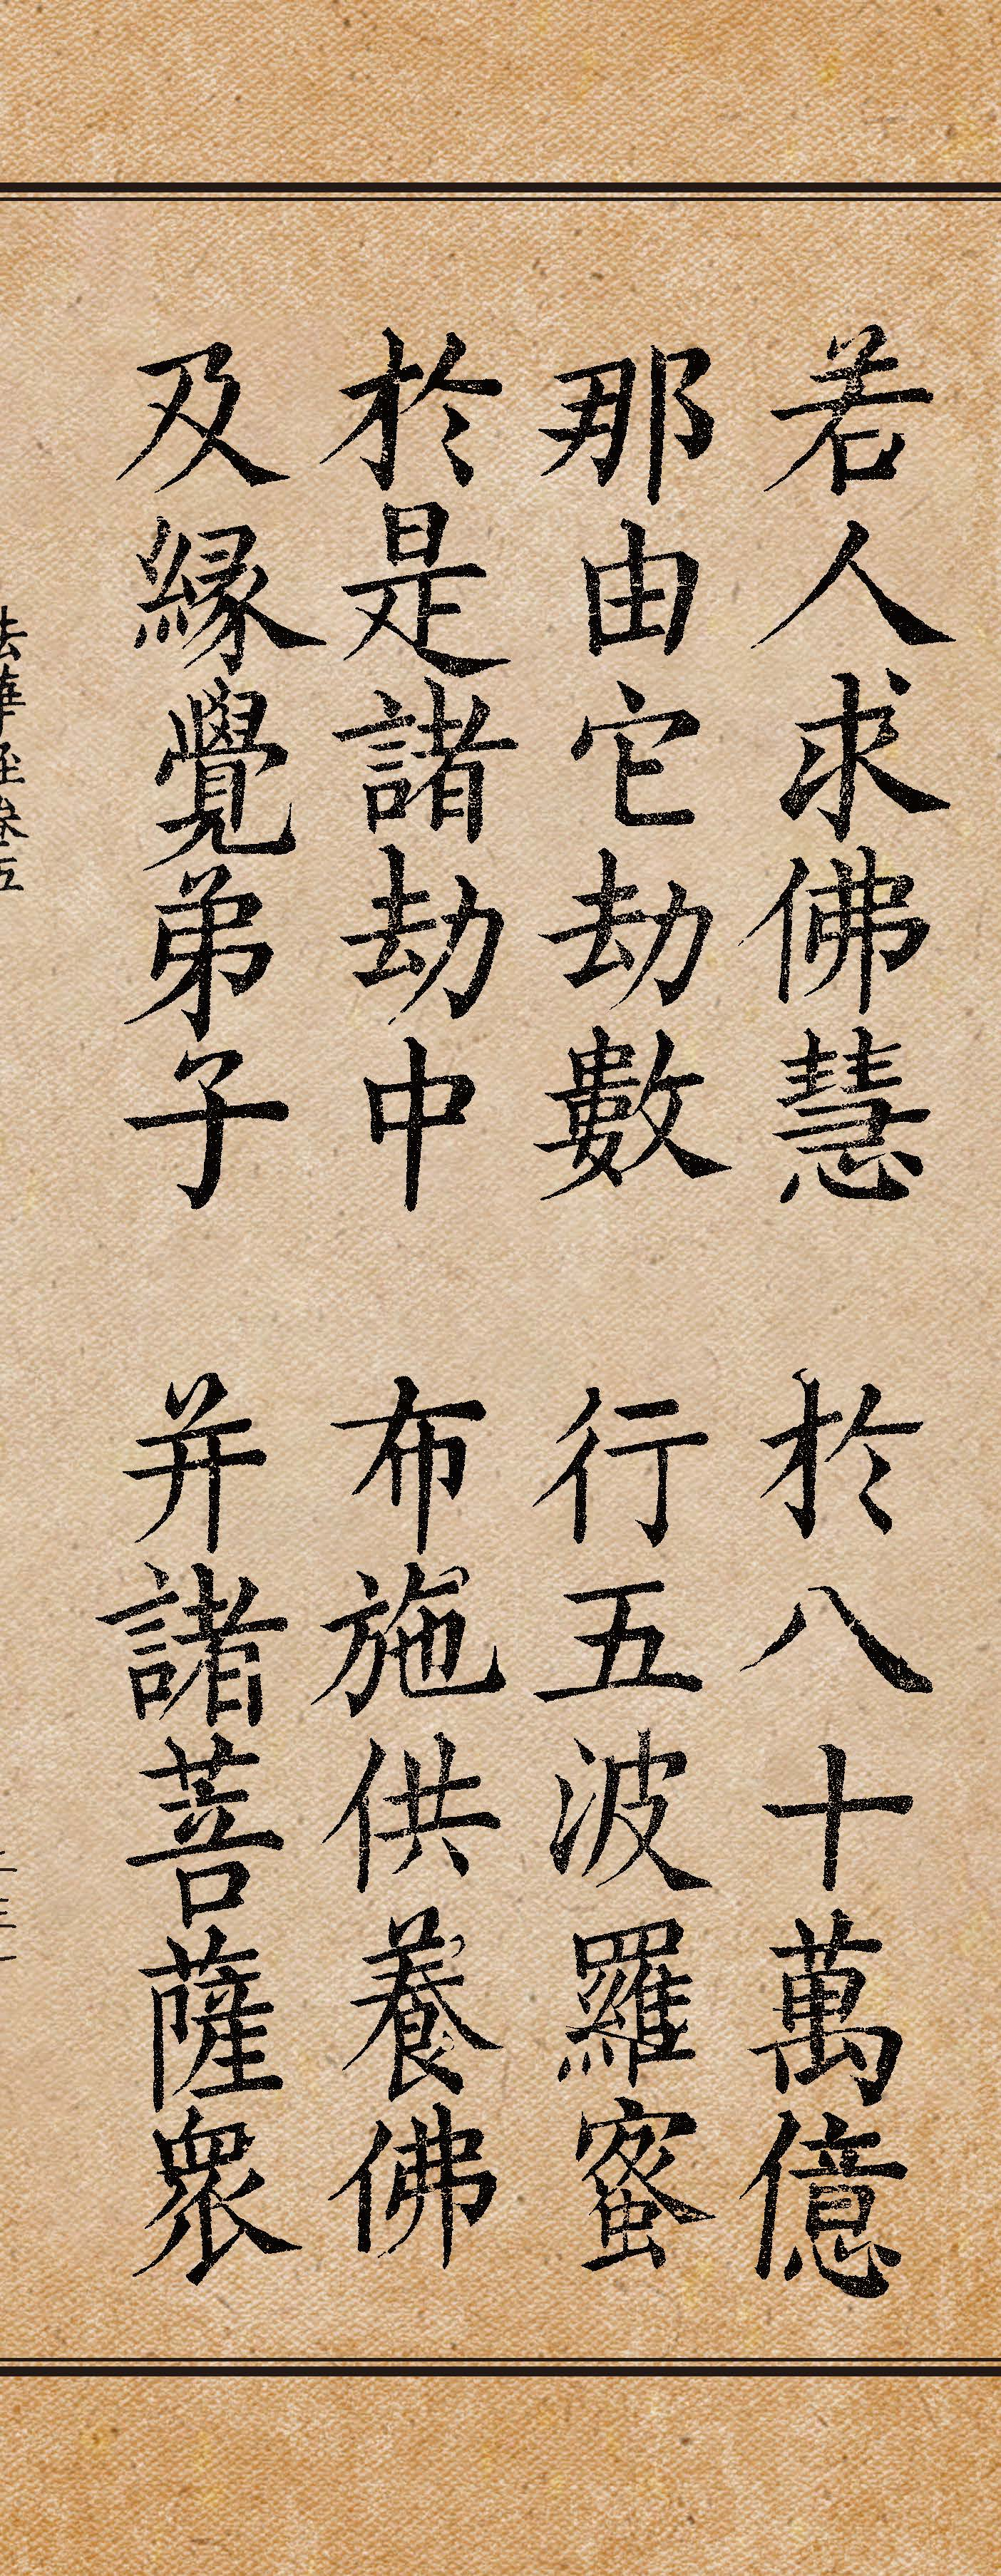 若人求佛慧 於八十萬億
那由它劫數 行五波羅蜜
於是諸劫中 布施供養佛
及緣覺弟子 并諸菩薩眾
法華經卷五